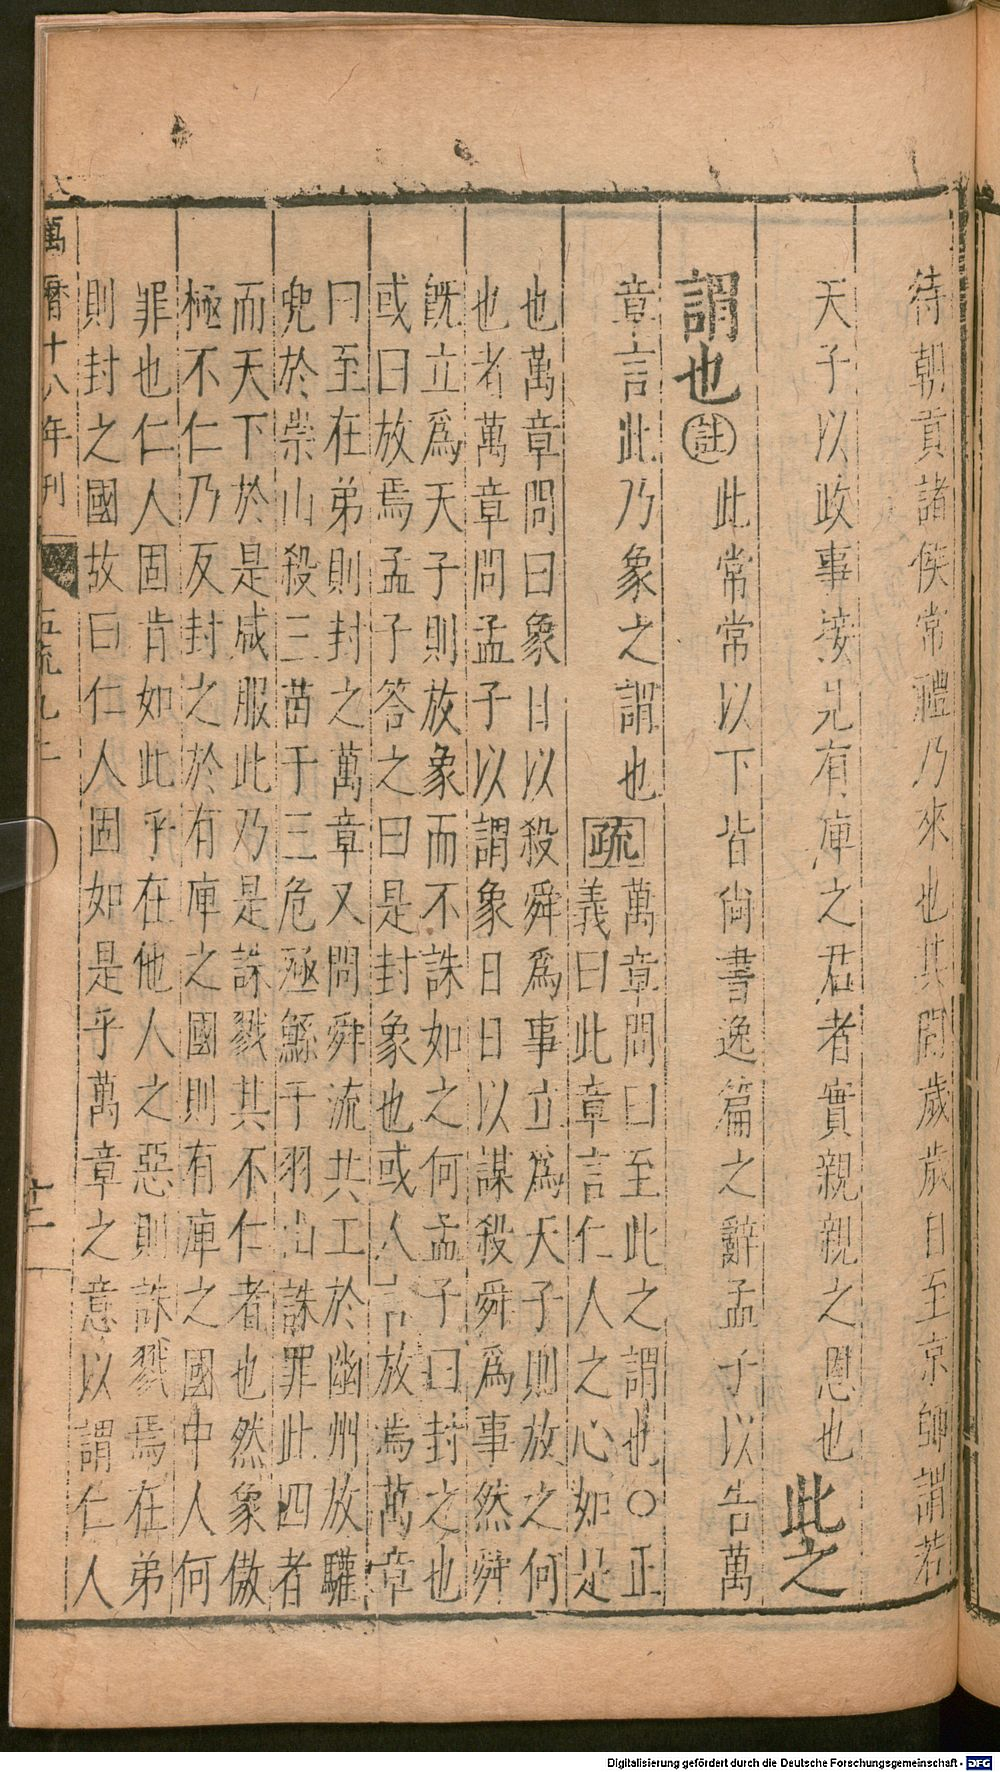 待朝貢諸侯常禮乃來也其間歲歲自至京師謂若
天子以政事接見有庳之君者實親親之恩也此之
謂也註此常常以下皆尚書逸篇之辭孟子以告萬
章言此乃象之謂也疏萬章問曰至此之謂也○正
義曰此章言仁人之心如是
也萬章問曰象日以殺舜爲事立爲天子則放之何
也者萬章問孟子以謂象日日以謀殺舜爲事然舜
旣立爲天子則放象而不誅如之何孟子曰封之也
或曰放焉孟子答之曰是封象也或人言放焉萬章
曰至在弟則封之萬章又問舜流共工於幽州放驩
兜於崇山殺三苗于三危殛鯀于羽山誅罪此四者
而天下於是咸服此乃是誅戮其不仁者也然象傲
極不仁乃反封之於有庳之國則有庳之國中人何
罪也仁人固肯如此乎在他人之惡則誅戮焉在弟
則封之國故曰仁人固如是乎萬章之意以謂仁人
萬曆十八年刊
孟疏九上
十二
Digitalisierung gefördert durch die Deutsche Forschungsgemeinschaft - DFG